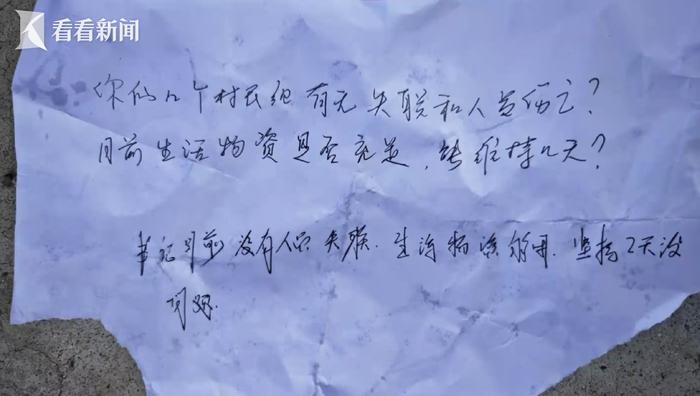 看看新闻
你们几个村民组有无失联和人员伤亡?
目前生活物资是否充足,能维持几天?
书记目前没有人员失联.生活物资够用.坚持2天没
问题.